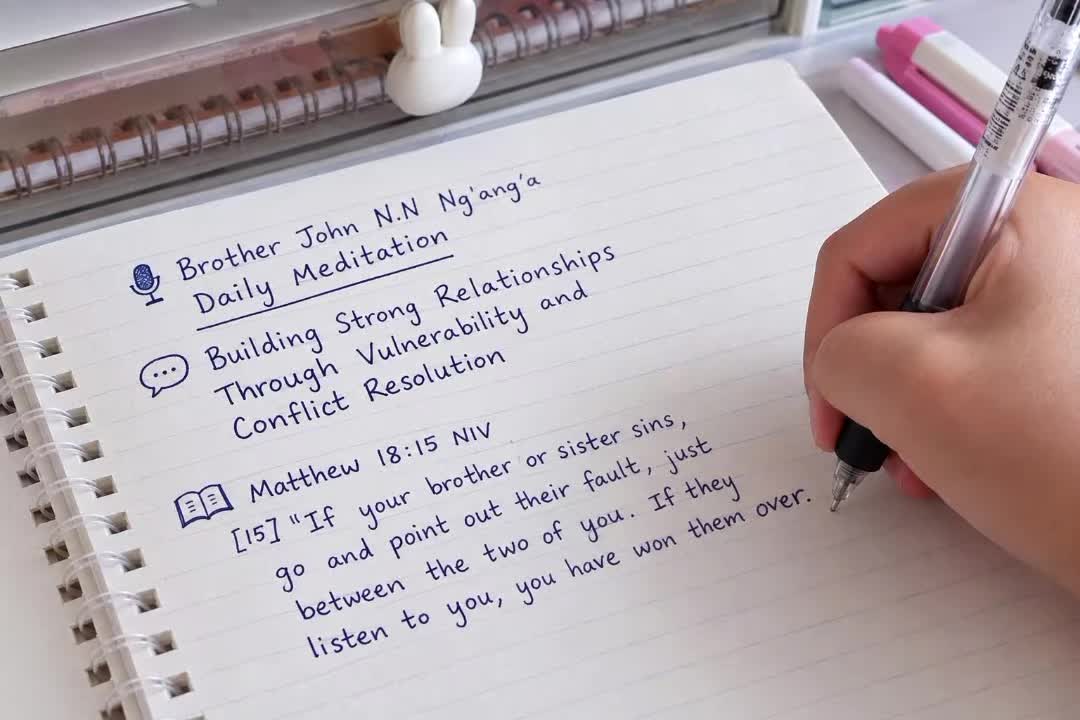 Brother John N.N Ng'ang'a
Daily Meditation
Building Strong Relationships
Through Vulnerability and
Conflict Resolution
Matthew 18:15 NIV
[15] "If your brother or sister sins,
go and point out their fault, just
between the two of you. If they
listen to you, you have won them over.